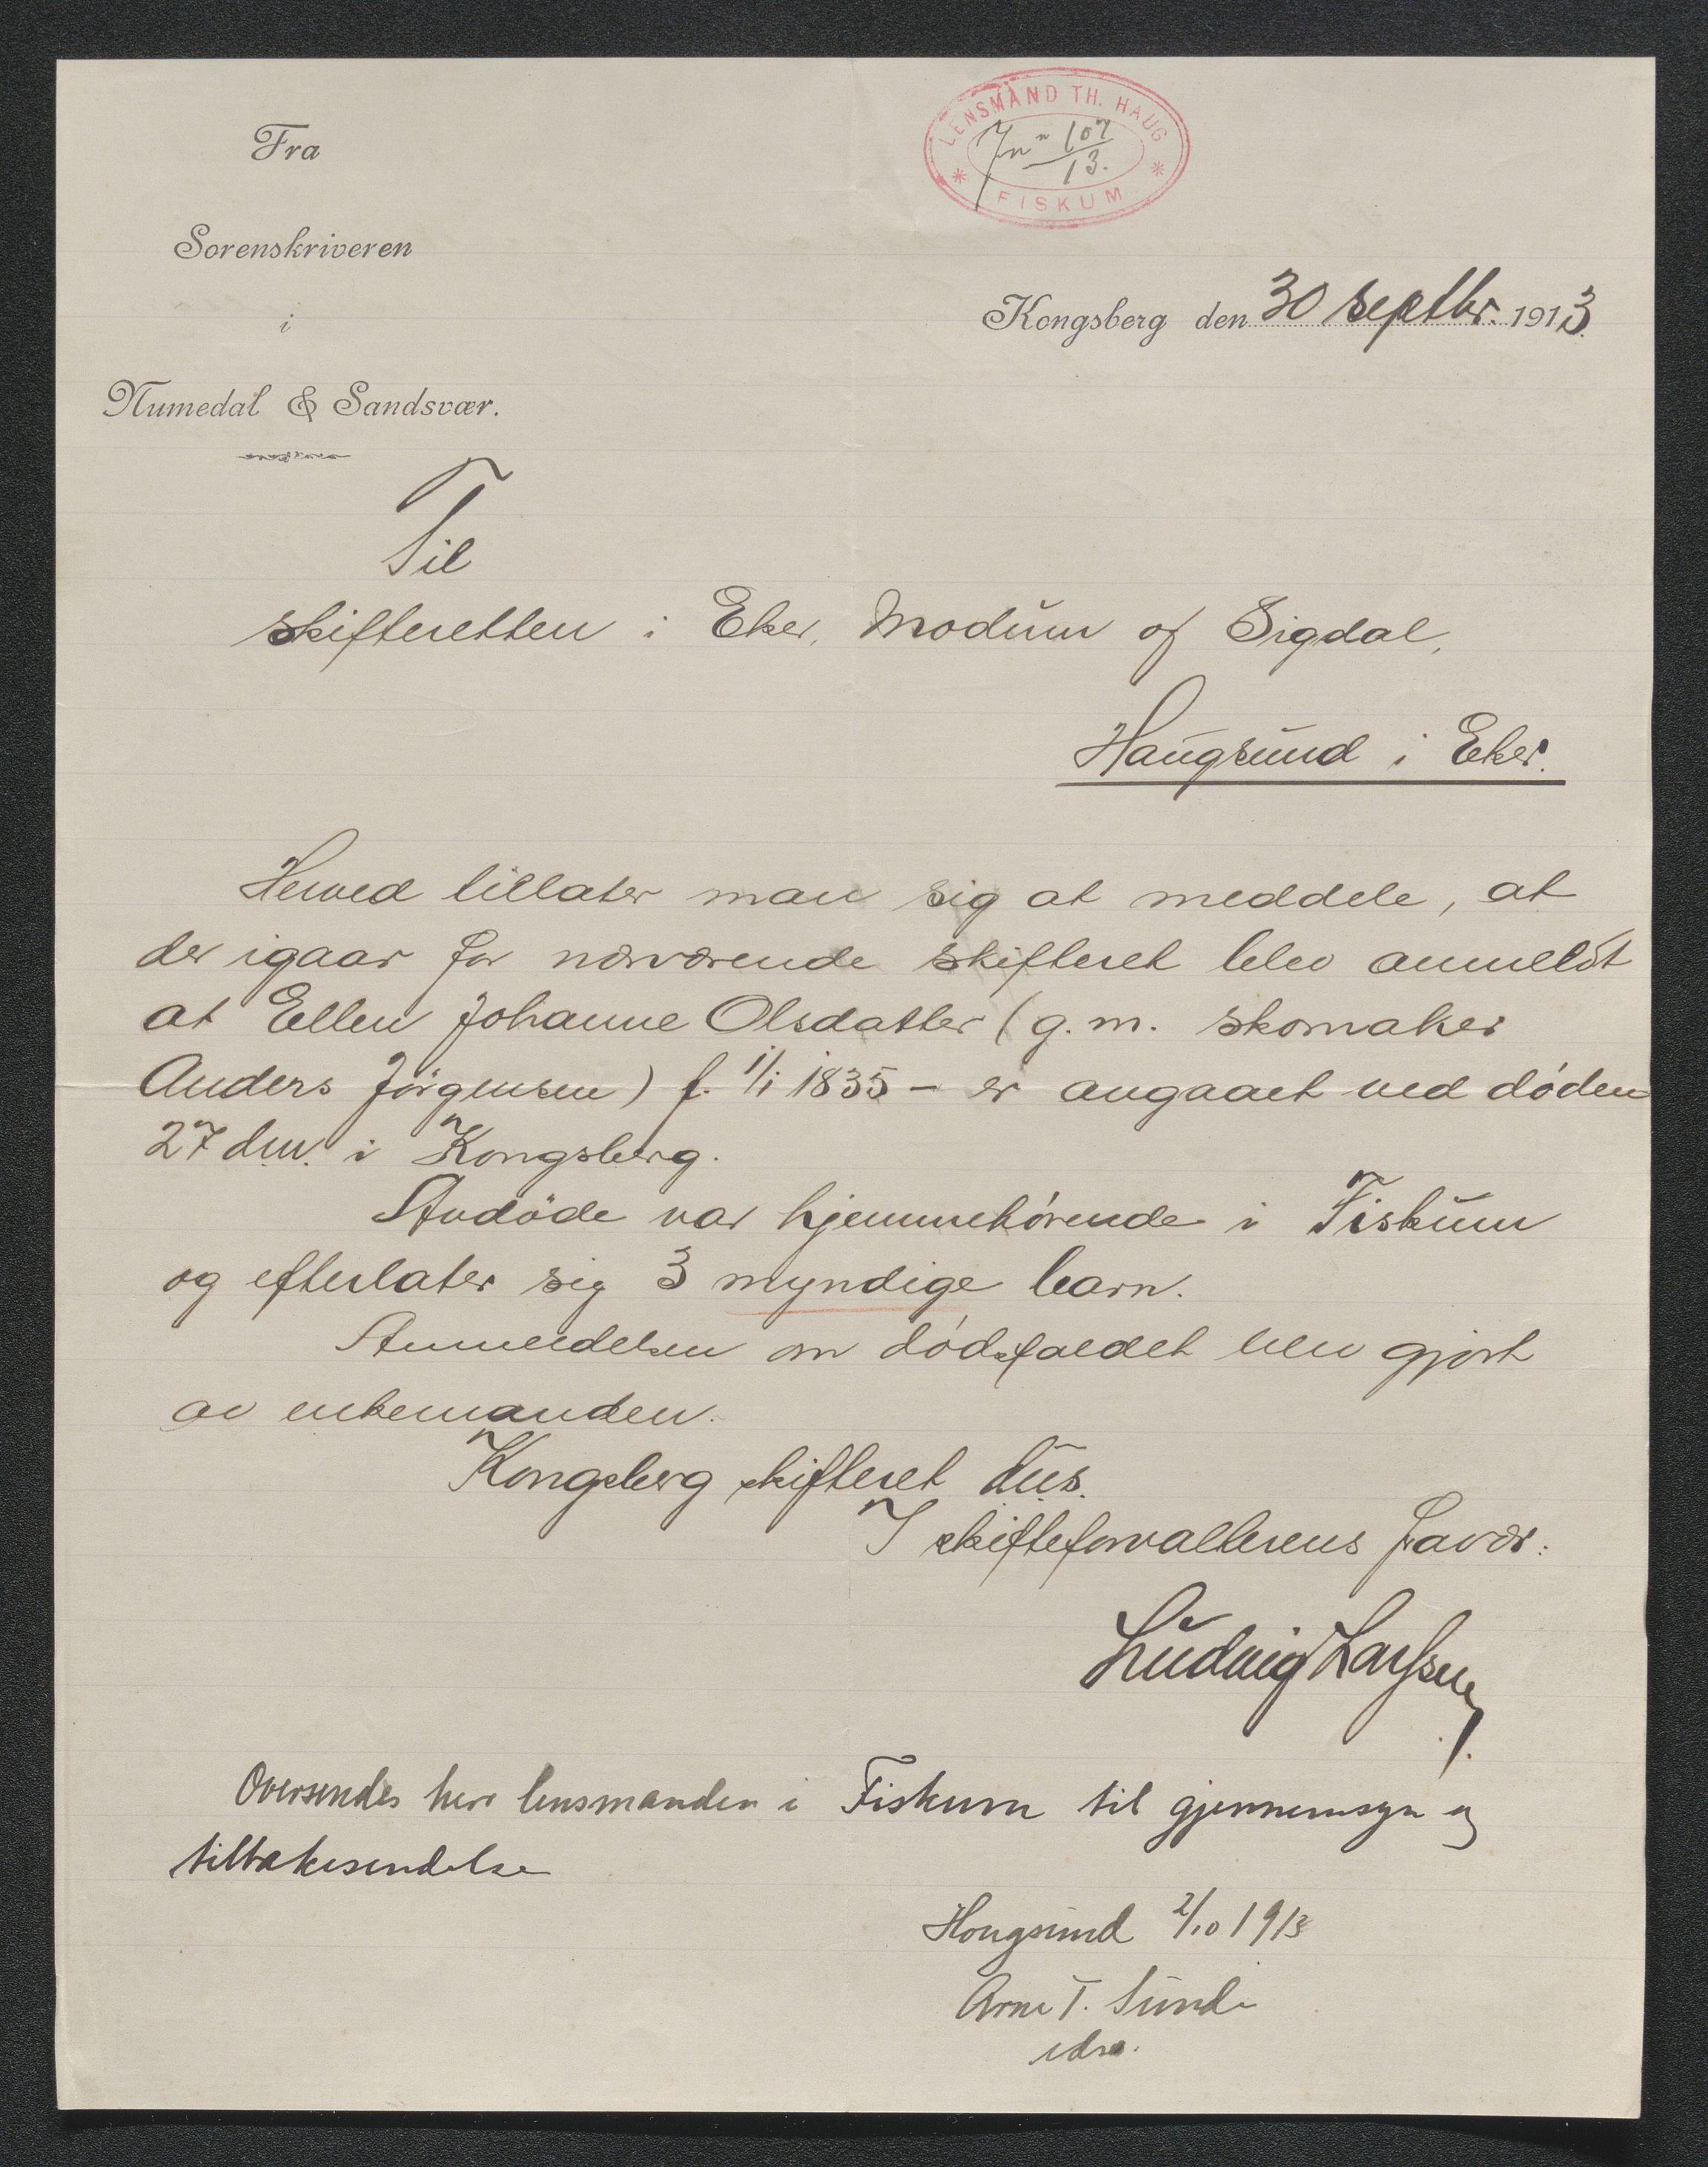 LENSMAND TH. HAUG
Jn n 107
13.
* FISKUM *
Fra
Sorenskriveren
i
Numedal & Sandsvær.
Kongsberg den 30 septbr. 1913.
Til
skifteretten i Eker, Modum og Sigdal,
Haugsund i Eker.
Herved tillater man sig at meddele, at
der igaar for nærværende skifteret blev anmeldt
at Ellen Johanne Olsdatter (g.m. skomaker
Anders Jörgensen) f. 1/1 1835 – er avgaaet ved døden
27 dm. i Kongsberg.
Avdöde var hjemmehörende i Fiskum
og efterlater sig 3 myndige barn.
Anmeldelsen om dödsfaldet blev gjort
av enkemanden.
Kongsberg skifteret d.u.s.
I skifteforvalterens fravær:
Ludvig Larssen
Oversendes herr lensmanden i Fiskum til gjennemsyn og
tilbakesendelse
Hougsund 2/10 1913
Arne T. Sunde